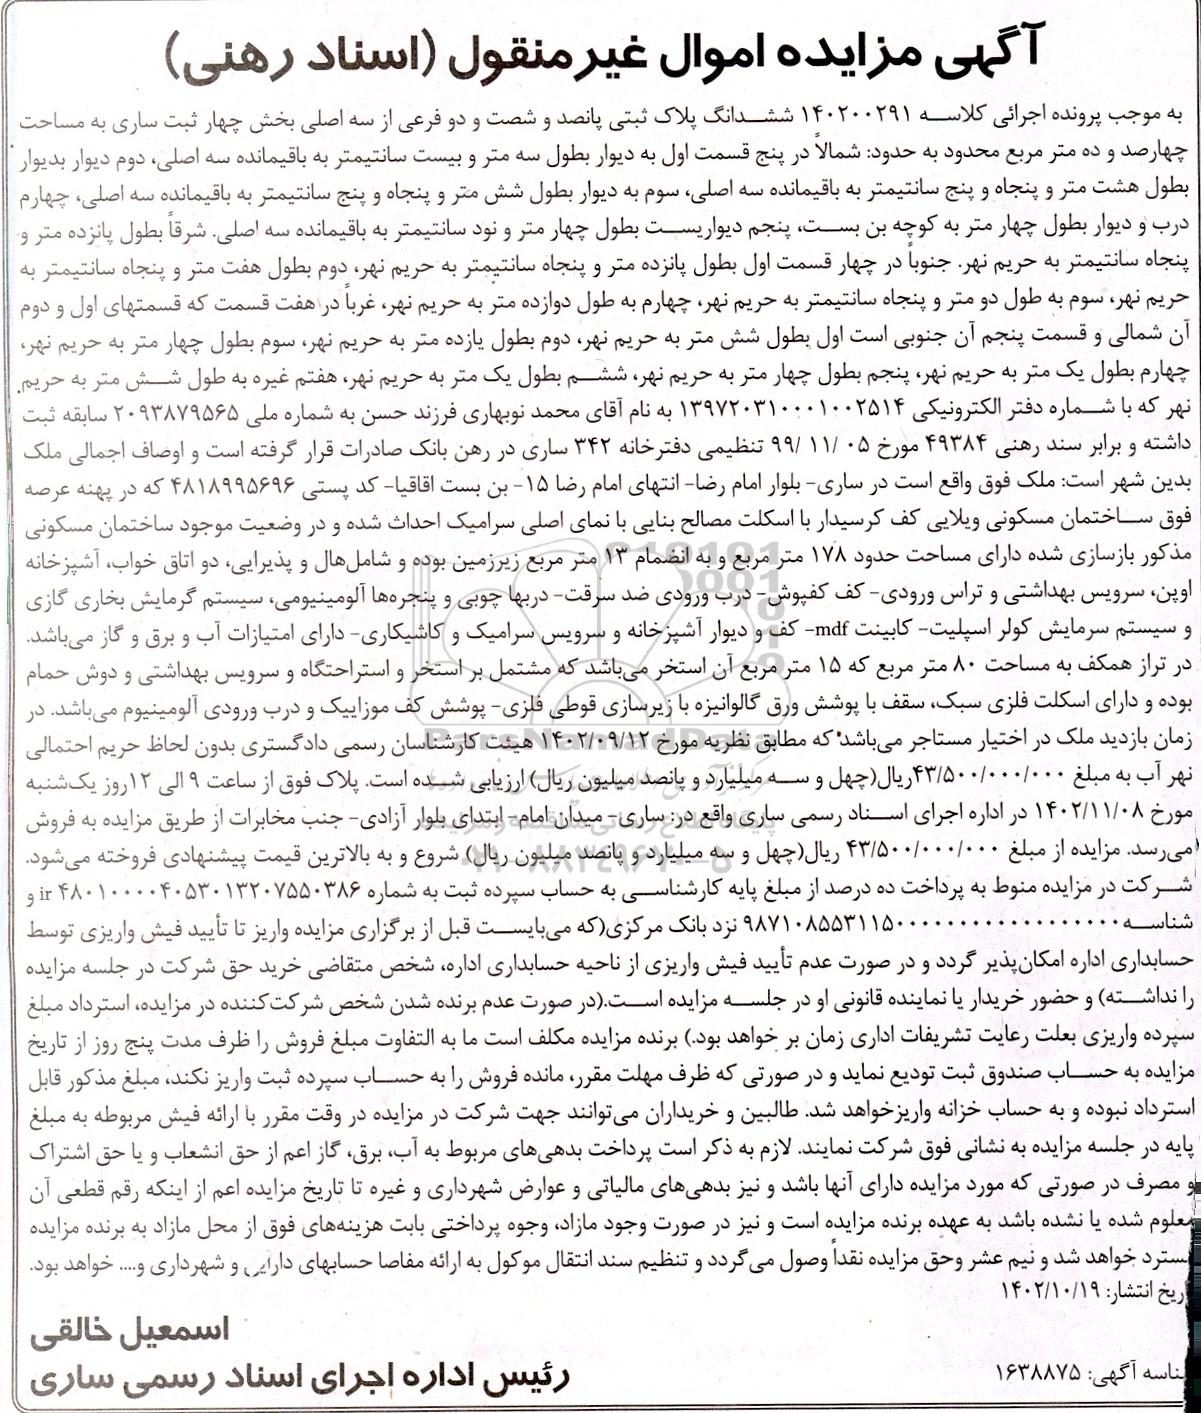 آگهی مزایده اموال غیر منقول (اسناد رهنی)
به موجب پرونده اجرائی کلاسه ۱۴۰۲۰۰۲۹۱ ششدانگ پلاک ثبتی پانصد و شصت و دو فرعی از سه اصلی بخش چهار ثبت ساری به مساحت
چهارصد و ده متر مربع محدود به حدود: شمالاً در پنج قسمت اول به دیوار بطول سه متر و بیست سانتیمتر به باقیمانده سه اصلی، دوم دیوار بدیوار
بطول هشت متر و پنجاه و پنج سانتیمتر به باقیمانده سه اصلی، سوم به دیوار بطول شش متر و پنجاه و پنج سانتیمتر به باقیمانده سه اصلی، چهارم
درب و دیوار بطول چهار متر به کوچه بن بست، پنجم دیواریست بطول چهار متر و نود سانتیمتر به باقیمانده سه اصلی. شرقاً بطول پانزده متر و
پنجاه سانتیمتر به حریم نهر. جنوباً در چهار قسمت اول بطول پانزده متر و پنجاه سانتیمتر به حریم نهر، دوم بطول هفت متر و پنجاه سانتیمتر به
حریم نهر، سوم به طول دو متر و پنجاه سانتیمتر به حریم نهر، چهارم به طول دوازده متر به حریم نهر، غرباً در هفت قسمت که قسمتهای اول و دوم
آن شمالی و قسمت پنجم آن جنوبی است اول بطول شش متر به حریم نهر، دوم بطول یازده متر به حریم نهر، سوم بطول چهار متر به حریم نهر،
چهارم بطول یک متر به حریم نهر، پنجم بطول چهار متر به حریم نهر، ششم بطول یک متر به حریم نهر، هفتم غیره به طول شش متر به حریم
نهر که با شماره دفتر الکترونیکی ۱۳۹۷۲۰۳۱۰۰۰۱۰۰۲۵۱۴ به نام آقای محمد نوبهاری فرزند حسن به شماره ملی ۲۰۹۳۸۷۹۵۶۵ سابقه ثبت
داشته و برابر سند رهنی ۴۹۳۸۴ مورخ ۰۵ /۱۱ /۹۹ تنظیمی دفترخانه ۳۴۲ ساری در رهن بانک صادرات قرار گرفته است و اوصاف اجمالی ملک
بدین شهر است: ملک فوق واقع است در ساری- بلوار امام رضا- انتهای امام رضا ۱۵- بن بست اقاقیا- کد پستی ۴۸۱۸۹۹۵۶۹۶ که در پهنه عرصه
فوق ساختمان مسکونی ویلایی کف کرسیدار با اسکلت مصالح بنایی با نمای اصلی سرامیک احداث شده و در وضعیت موجود ساختمان مسکونی
مذکور بازسازی شده دارای مساحت حدود ۱۷۸ متر مربع و به انضمام ۱۳ متر مربع زیرزمین بوده و شامل‌هال و پذیرایی، دو اتاق خواب، آشپزخانه
اوپن، سرویس بهداشتی و تراس ورودی- کف کفپوش- درب ورودی ضد سرقت- دربها چوبی و پنجره‌ها آلومینیومی، سیستم گرمایش بخاری گازی
و سیستم سرمایش کولر اسپلیت- کابینت mdf- کف و دیوار آشپزخانه و سرویس سرامیک و کاشیکاری- دارای امتیازات آب و برق و گاز می‌باشد.
در تراز همکف به مساحت ۸۰ متر مربع که ۱۵ متر مربع آن استخر می‌باشد که مشتمل بر استخر و استراحتگاه و سرویس بهداشتی و دوش حمام
بوده و دارای اسکلت فلزی سبک، سقف با پوشش ورق گالوانیزه با زیرسازی قوطی فلزی- پوشش کف موزاییک و درب ورودی آلومینیوم می‌باشد. در
زمان بازدید ملک در اختیار مستاجر می‌باشد که مطابق نظریه مورخ ۱۴۰۲/۰۹/۱۲ هیئت کارشناسان رسمی دادگستری بدون لحاظ حریم احتمالی
نهر آب به مبلغ ۴۳/۵۰۰/۰۰۰/۰۰۰ریال(چهل و سه میلیارد و پانصد میلیون ریال) ارزیابی شده است. پلاک فوق از ساعت ۹ الی ۱۲روز یک‌شنبه
مورخ ۱۴۰۲/۱۱/۰۸ در اداره اجرای اسناد رسمی ساری واقع در: ساری- میدان امام- ابتدای بلوار آزادی- جنب مخابرات از طریق مزایده به فروش
می‌رسد. مزایده از مبلغ ۴۳/۵۰۰/۰۰۰/۰۰۰ ریال(چهل و سه میلیارد و پانصد میلیون ریال) شروع و به بالاترین قیمت پیشنهادی فروخته می‌شود.
شرکت در مزایده منوط به پرداخت ده درصد از مبلغ پایه کارشناسی به حساب سپرده ثبت به شماره ir ۴۸۰۱۰۰۰۰۴۰۵۳۰۱۳۲۰۷۵۵۰۳۸۶ و
شناسه ۹۸۷۱۰۸۵۵۳۱۱۵۰۰۰۰۰۰۰۰۰۰۰۰۰۰۰۰۰۰ نزد بانک مرکزی(که می‌بایست قبل از برگزاری مزایده واریز تا تأیید فیش واریزی توسط
حسابداری اداره امکان‌پذیر گردد و در صورت عدم تأیید فیش واریزی از ناحیه حسابداری اداره، شخص متقاضی خرید حق شرکت در جلسه مزایده
را نداشته) و حضور خریدار یا نماینده قانونی او در جلسه مزایده است.(در صورت عدم برنده شدن شخص شرکت‌کننده در مزایده، استرداد مبلغ
سپرده واریزی بعلت رعایت تشریفات اداری زمان بر خواهد بود.) برنده مزایده مکلف است ما به التفاوت مبلغ فروش را ظرف مدت پنج روز از تاریخ
مزایده به حساب صندوق ثبت تودیع نماید و در صورتی که ظرف مهلت مقرر، مانده فروش را به حساب سپرده ثبت واریز نکند، مبلغ مذکور قابل
استرداد نبوده و به حساب خزانه واریزخواهد شد. طالبین و خریداران می‌توانند جهت شرکت در مزایده در وقت مقرر با ارائه فیش مربوطه به مبلغ
پایه در جلسه مزایده به نشانی فوق شرکت نمایند. لازم به ذکر است پرداخت بدهی‌های مربوط به آب، برق، گاز اعم از حق انشعاب و یا حق اشتراک
و مصرف در صورتی که مورد مزایده دارای آنها باشد و نیز بدهی‌های مالیاتی و عوارض شهرداری و غیره تا تاریخ مزایده اعم از اینکه رقم قطعی آن
معلوم شده یا نشده باشد به عهده برنده مزایده است و نیز در صورت وجود مازاد، وجوه پرداختی بابت هزینه‌های فوق از محل مازاد به برنده مزایده
مسترد خواهد شد و نیم عشر وحق مزایده نقداً وصول می‌گردد و تنظیم سند انتقال موکول به ارائه مفاصا حسابهای دارایی و شهرداری و.... خواهد بود.
تاریخ انتشار: ۱۴۰۲/۱۰/۱۹
اسمعیل خالقی
رئیس اداره اجرای اسناد رسمی ساری
شناسه آگهی: ۱۶۳۸۸۷۵
ParsNamadData